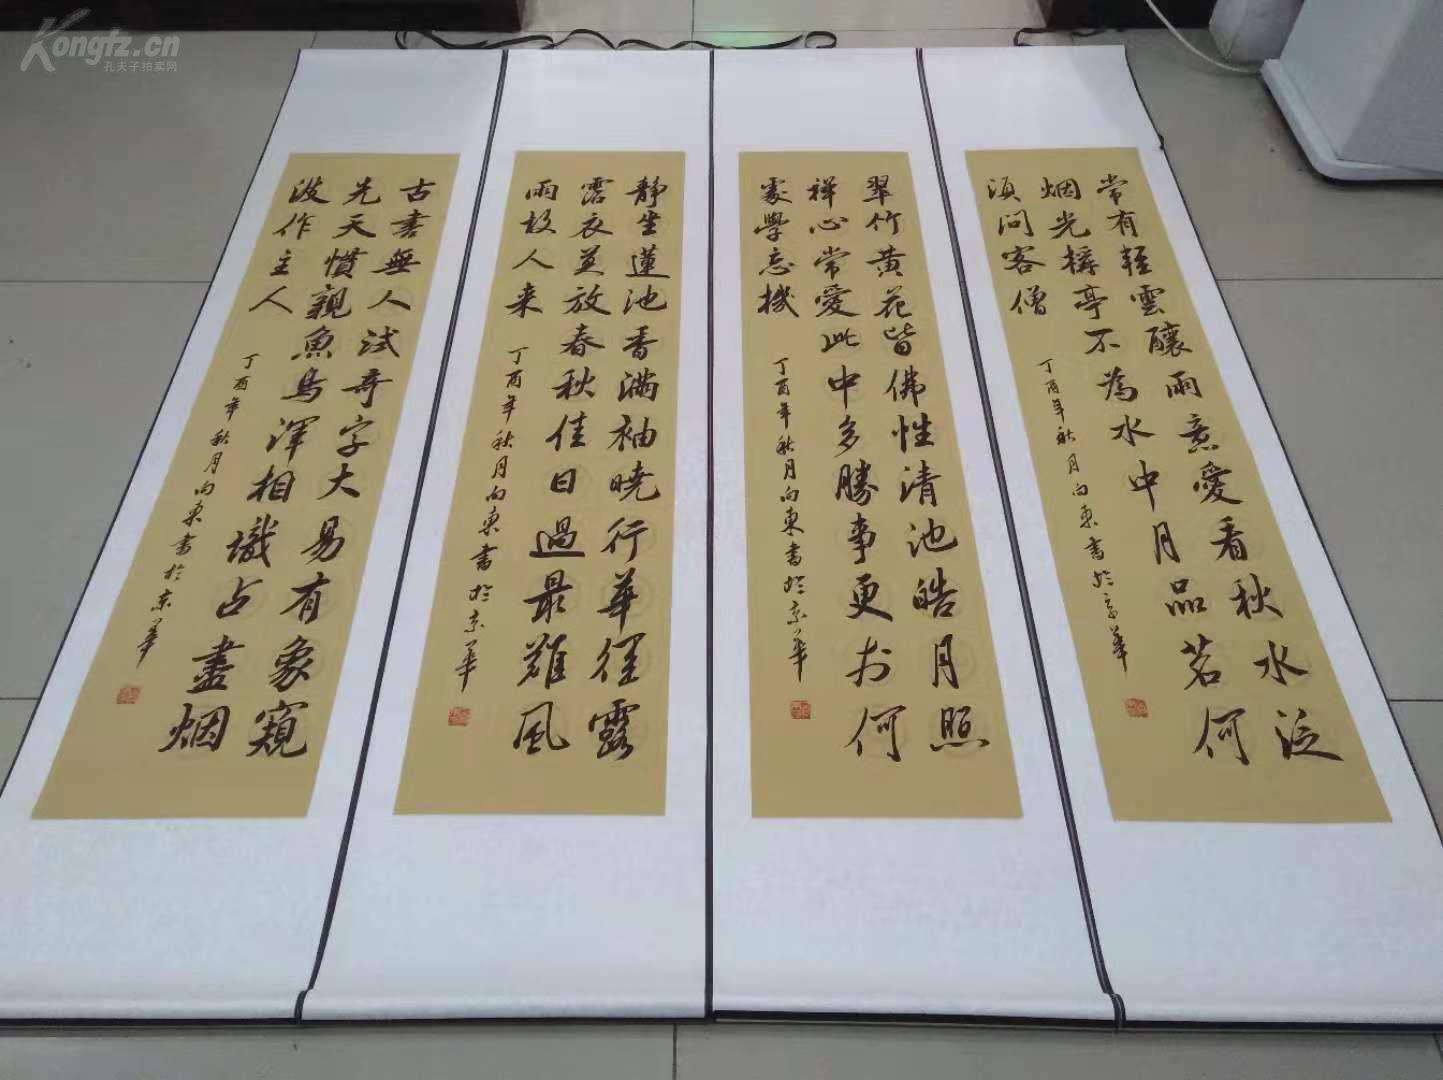 Kongfz.cn
孔夫子拍卖网
常有輕雲釀雨意愛看秋水泛
烟光亭不為水中月品茗何
須問客僧
丁酉年秋月向東書於京華
翠竹黄花皆佛性清池皓月照
禅心常愛此中多勝事更於何
處學忘機
丁酉年秋月向東書於京華
靜坐蓮池香滿袖曉行華徑露
霑衣莫放春秋佳日過最難風
雨故人来
丁酉年秋月向東書於京華
古書無人試奇字大易有象窺
先天慣親魚鳥渾相識占盡烟
波作主人
丁酉年秋月向東書於京華